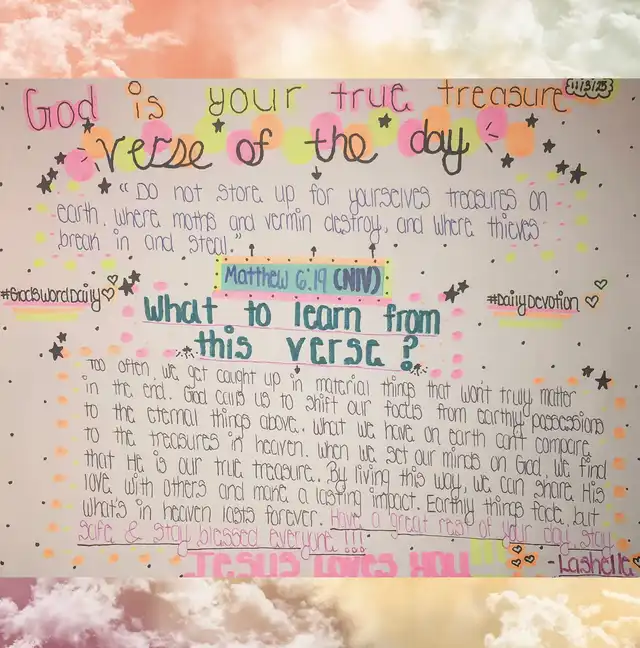 God is your true treasure
11/3/25
verse of the day
"Do not store up for yourselves treasures on
earth, where moths and vermin destroy, and where thieves
break in and steal."
Matthew 6:19 (NIV)
#GodsWordDaily
#DailyDevotion
What to learn from
this verse?
Too often, we get caught up in material things that won't truly matter
in the end. God calls us to shift our focus from earthly possessions
to the eternal things above. What we have on earth can't compare
to the treasures in heaven. When we set our minds on God, we find
that He is our true treasure. By living this way, we can share His
love with others and make a lasting impact. Earthly things fade, but
what's in heaven lasts forever. Have a great rest of your day, stay
safe & stay blessed everyone!!!
Jesus Loves You!!!
-Lashelle